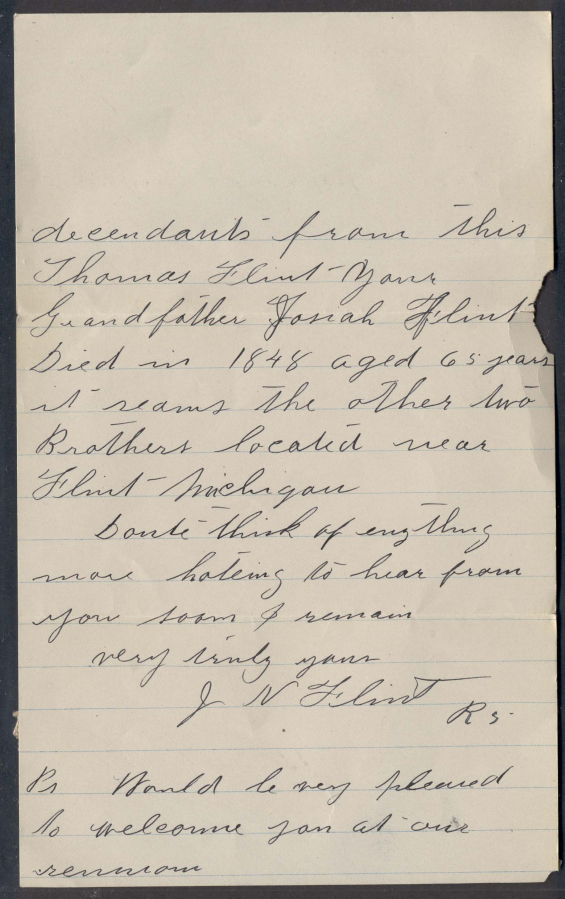 decendants from this
Thomas Flint Your
Grandfather Josiah Flint
Died in 1848 aged 65 years
it seams the other two
Brothers located near
Flint Michigan
Donte think of enything
more hoteing to hear from
you soon I remain
very truly yours
J N Flint R 5
Ps Would be very pleased
to welcome you at our
reunion